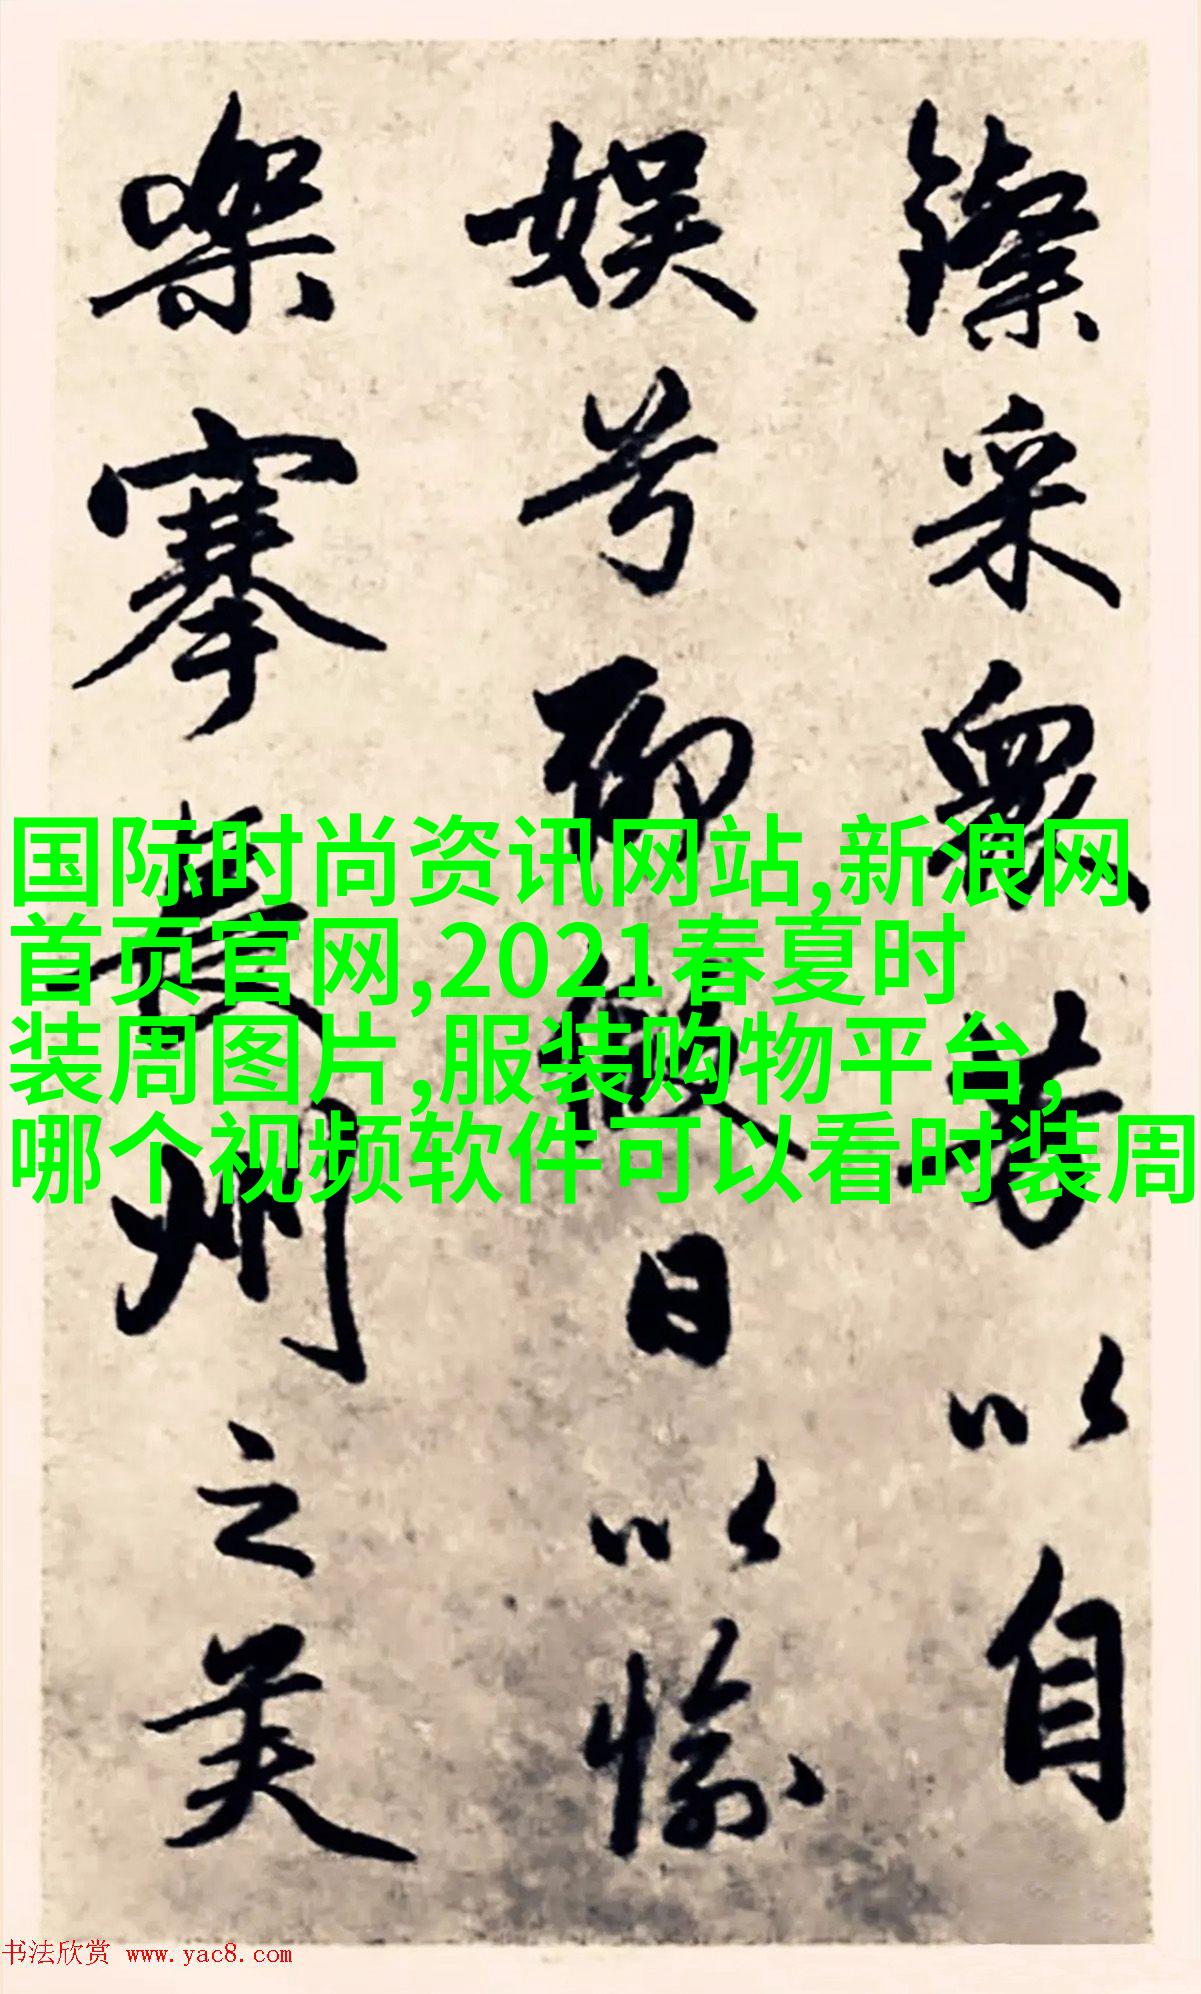 采眾芳以自
娱兮聊假日以愉
樂搴長州之芙
国际时尚资讯网站,新浪网
首页官网,2021春夏时
装周图片,服装购物平台,
哪个视频软件可以看时装周
书法欣赏 www.yac8.com